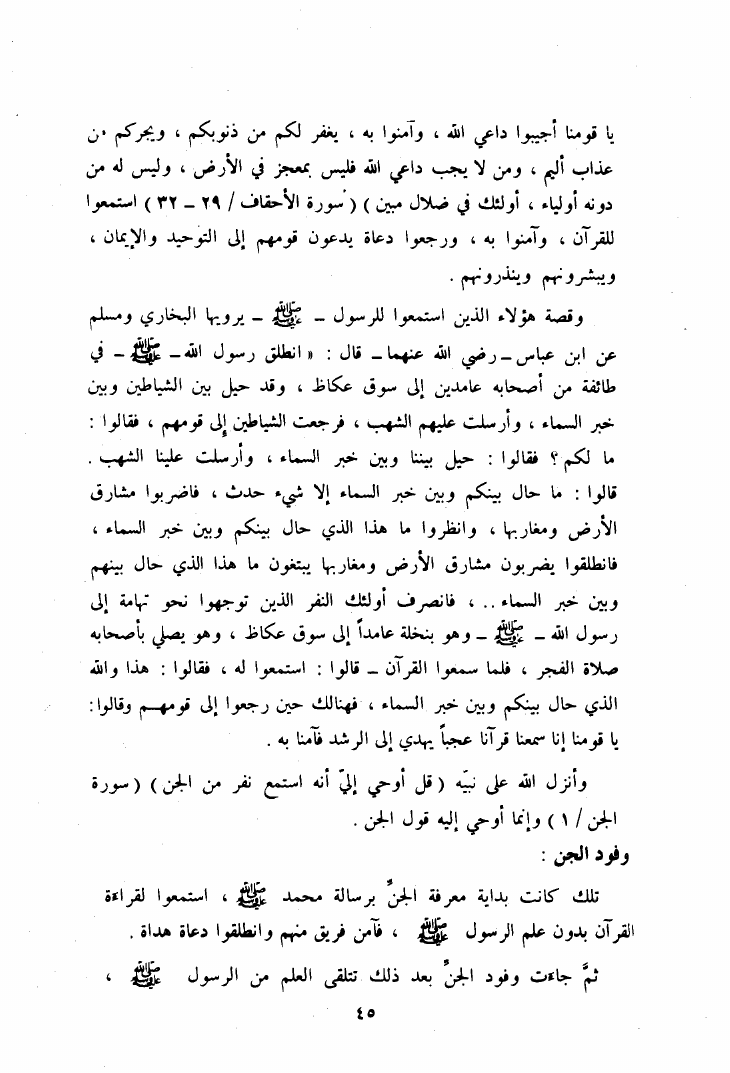 يا قومنا أجيبوا داعي الله ، وآمنوا به ، يغفر لكم من ذنوبكم ، ويجركم من
عذاب أليم ، ومن لا يجب داعي الله فليس بمعجز في الأرض ، وليس له من
دونه أولياء ، أولئك في ضلال مبين ) ( سورة الأحقاف / ٢٩ – ٣٢ ) استمعوا
للقرآن ، وآمنوا به ، ورجعوا دعاة يدعون قومهم إلى التوحيد والإيمان ،
ويبشرونهم وينذرونهم .
وقصة هؤلاء الذين استمعوا للرسول – ﷺ – يرويها البخاري ومسلم
عن ابن عباس – رضي الله عنهما – قال : « انطلق رسول الله – ﷺ – في
طائفة من أصحابه عامدين إلى سوق عكاظ ، وقد حيل بين الشياطين وبين
خبر السماء ، وأرسلت عليهم الشهب ، فرجعت الشياطين إلى قومهم ، فقالوا :
ما لكم ؟ فقالوا : حيل بيننا وبين خبر السماء ، وأرسلت علينا الشهب .
قالوا : ما حال بينكم وبين خبر السماء إلا شيء حدث ، فاضربوا مشارق
الأرض ومغاربها ، وانظروا ما هذا الذي حال بينكم وبين خبر السماء ،
فانطلقوا يضربون مشارق الأرض ومغاربها يبتغون ما هذا الذي حال بينهم
وبين خبر السماء .. ، فانصرف أولئك النفر الذين توجهوا نحو تهامة إلى
رسول الله – ﷺ – وهو بنخلة عامداً إلى سوق عكاظ ، وهو يصلي بأصحابه
صلاة الفجر ، فلما سمعوا القرآن – قالوا : استمعوا له ، فقالوا : هذا والله
الذي حال بينكم وبين خبر السماء ، فهنالك حين رجعوا إلى قومهم وقالوا :
يا قومنا إنا سمعنا قرآنا عجباً يهدي إلى الرشد فآمنا به .
وأنزل الله على نبيّه ( قل أوحي إليّ أنه استمع نفر من الجن ) ( سورة
الجن / ١ ) وإنما أوحي إليه قول الجن .
وفود الجن :
تلك كانت بداية معرفة الجنِّ برسالة محمد ﷺ ، استمعوا لقراءة
القرآن بدون علم الرسول ﷺ ، فآمن فريق منهم وانطلقوا دعاة هداة .
ثمَّ جاءت وفود الجنِّ بعد ذلك تتلقى العلم من الرسول ﷺ ،
٤٥